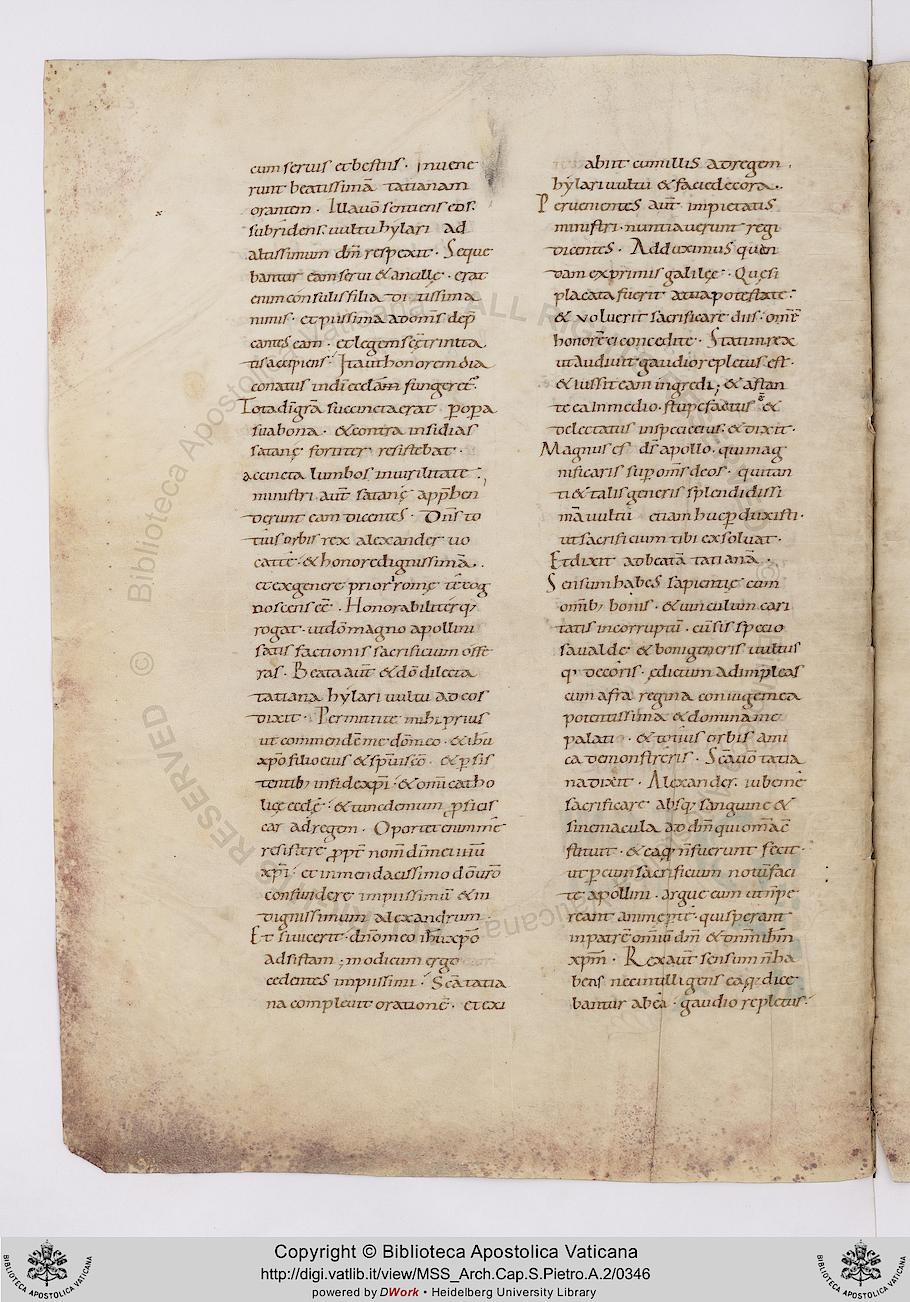 cum seruis et bestiis · Inuene
runt beatissimā tatianam
orantem · Illa uō sentiens eos ·
subridens · uultu hylari ad
altissimum dm̄ respexit · Seque
bantur eam serui & ancillę · erat
enim consulis filia ditissima
nimis · et piissima ad om̄s dep̄
cantes eam · et legem scē trinita
tis accipiens · Ita ut honorem dia
conatus in di ecclam̄ fungeret᷑ ·
Tota di gr̄a succincta erat p opera
sua bona · & contra insidias
satanę fortiter resistebat ·
accincta lumbos in uirilitate ·
ministri aut̄ satanę app̄hen
derunt eam dicentes · Dn̄s to
tius orbis rex alexander uo
cat te · & honore dignissimā ·
et ex genere priorꝭ romę te cog
noscens eē · Honorabiliter q;
rogat · ut dō magno apollini
satis factionis sacrificium offe
ras · Beata aut̄ & dō dilecta
tatiana hylari uultu ad eos
dixit · Permittite mihi prius
ut commendē me dō meo · & ihū
xp̄o filio eius & sp̄ui scō · & p̄sis
tentib; in fide xp̄i · & om̄i catho
licę ecclę · & tunc demum p̄ficis
car ad regem · Oportet enim mē
resistere ꝓpt̄ nom̄ di mei ihū
xp̄i · et in mendacissimo dō ur̄o
confundere impiissimū & in
dignissimum alexandrum ·
Et si uicerit · dn̄o meo ihū xp̄o
adsistam ; modicum ergo
cedentes impiissimi · Scā tatia
na compleuit orationē · et exi
abiit cum illis ad regem ·
hylari uultu & facie decora ·
Peruenientes aut̄ impietatis
ministri · nuntiauerunt regi
dicentes · Adduximus quen
dam ex primis galilęę · Quę si
placata fuerit a tua potestate ·
& voluerit sacrificare diis · om̄ē
honorē ei concedite · Statim rex
ut audiuit gaudio repletus est ·
& iussit eam ingredi ; & astan
te ea in medio · stupefactus ē &
delectatus in specie eius · & dixit ·
Magnus es ds̄ apollo · qui mag
nificaris sup om̄s deos · qui tan
ti & talis generis splendidissi
mā uultū etiam huc pduxisti ·
ut sacrificium tibi exsoluat ·
Et dixit ad beatā tatianā ·
Sensum habes sapientię cum
omīb; bonis · & uinculum cari
tatis incorruptū · cū sis specio
sa ualde · & boni generis uultus
q; decoris · edictum adimpleas
cum afra regina coniuge mea
potentissima & domina me
palati · & totius orbis ami
ca demonstreris · Scā uō tatia
na dixit · Alexander · iube mē
sacrificare absq; sanguine &
sine macula ad dm̄ qui om̄a cō
stituit · & ea q n̄ fuerunt fecit ·
ut p cum sacrificium notū faci
te apollini · argue eum ut n̄ pe
reant animę p te · qui sperant
in patrē om̄iū dm̄ & dn̄m ihm̄
xp̄m · Rex aut̄ sensum n̄ ha
bens nec intelligens ea q; dice
bantur ab ea · gaudio repletus ·
Copyright © Biblioteca Apostolica Vaticana
http://digi.vatlib.it/view/MSS_Arch.Cap.S.Pietro.A.2/0346
powered by DWork • Heidelberg University Library